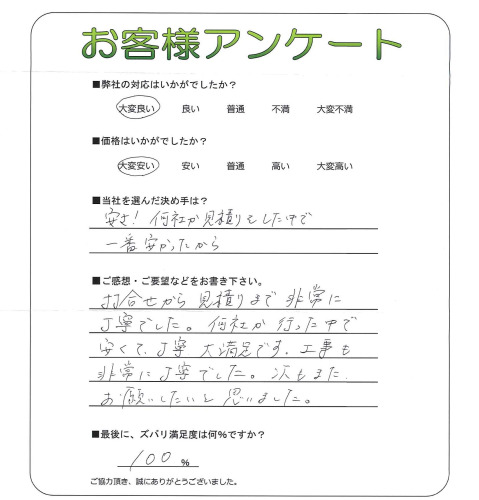 お客様アンケート
■弊社の対応はいかがでしたか？
大変良い 良い 普通 不満 大変不満
■価格はいかがでしたか？
大変安い 安い 普通 高い 大変高い
■当社を選んだ決め手は？
安さ！何社か見積りをした中で
一番安かったから
■ご感想・ご要望などをお書き下さい。
打合せから見積りまで非常に
丁寧でした。何社か行った中で
安くて、丁寧 大満足です。工事も
非常に丁寧でした。次もまた、
お願いしたいと思いました。
■最後に、ズバリ満足度は何％ですか？
100 ％
ご協力頂き、誠にありがとうございました。